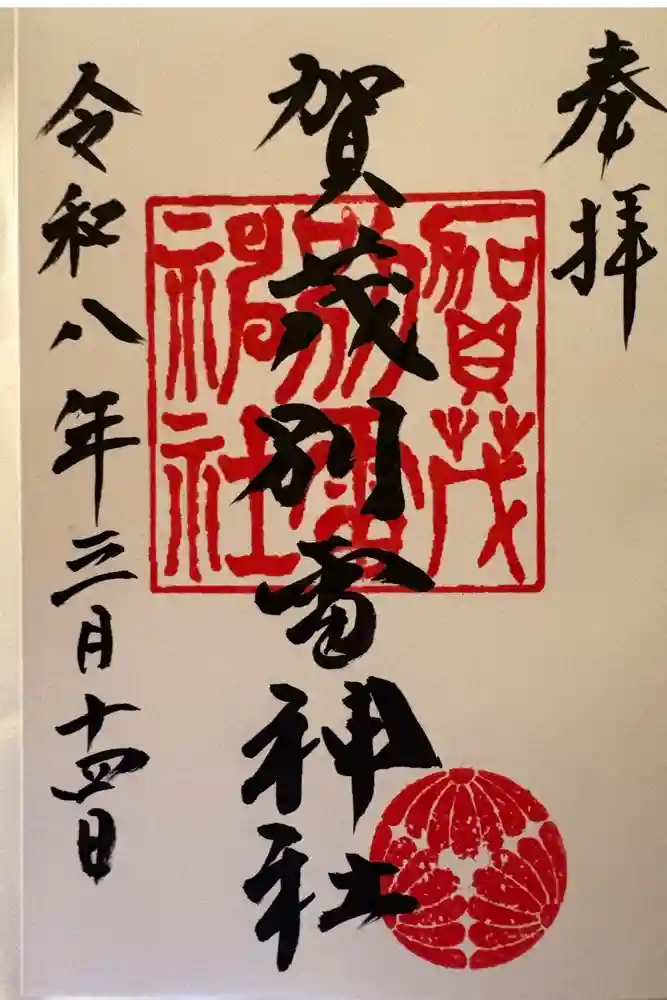 奉拝
賀茂別雷神社
賀茂別雷神社
令和八年三月十四日